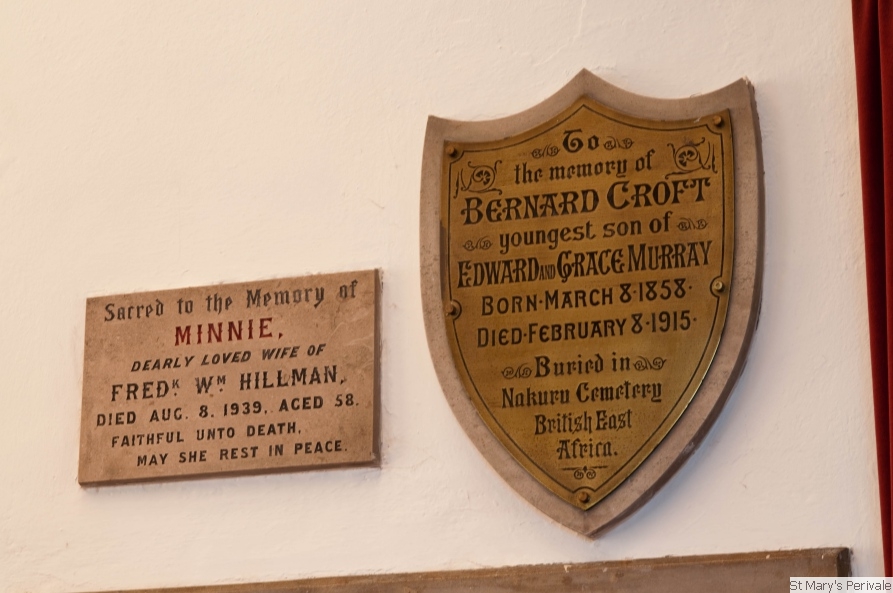 Sacred to the Memory of
MINNIE,
DEARLY LOVED WIFE OF
FREDK. WM HILLMAN,
DIED AUG. 8. 1939, AGED 58.
FAITHFUL UNTO DEATH,
MAY SHE REST IN PEACE.
To
the memory of
BERNARD CROFT
youngest son of
EDWARD AND GRACE MURRAY
BORN·MARCH 8·1858·
DIED·FEBRUARY 8·1915·
Buried in
Nakuru Cemetery
British East
Africa.
St Mary's Perivale